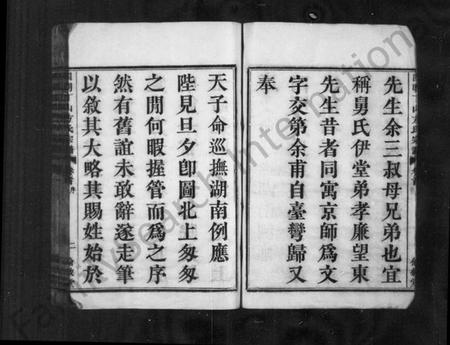 先生余三叔母兄弟也宜
稱舅氏伊堂弟孝廉望東
先生昔者同寓京師為文
字交第余甫自臺彎歸又
奉
天子命巡撫湖南例應上
陛見旦夕卽圖北上匆匆
之間何暇握管而為之序
然有舊誼未敢辭遂走筆
以敘其大略其賜姓始於